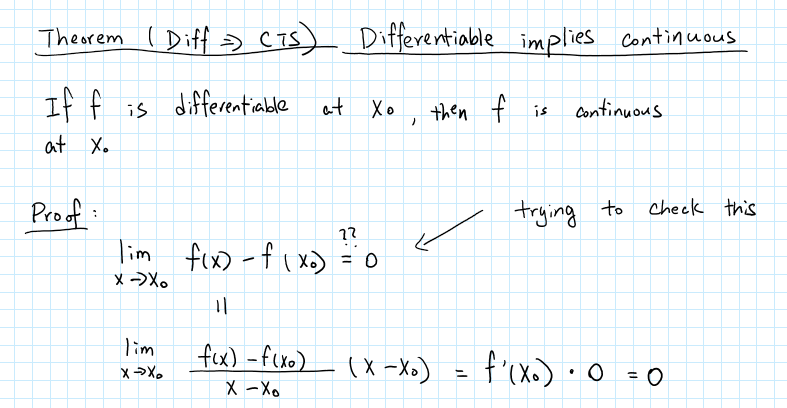 Theorem (Diff ⇒ CTS) Differentiable implies continuous
If f is differentiable at x₀, then f is continuous
at x₀
Proof: trying to check this
lim x→x₀ f(x) - f(x₀) =?? 0
||
lim x→x₀ (f(x) - f(x₀))/(x - x₀) (x - x₀) = f'(x₀) · 0 = 0